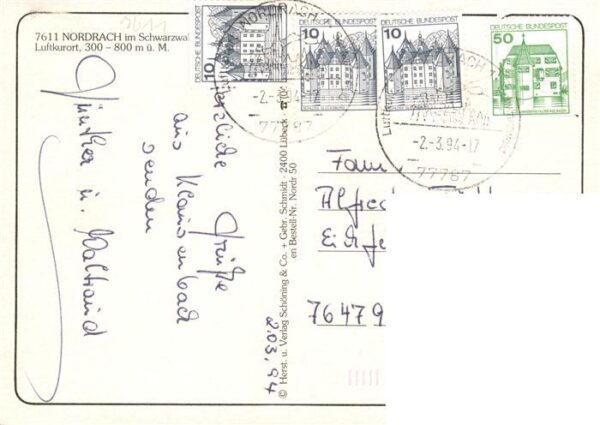 7611 NORDRACH im Schwarzwa
Luftkurort, 300 – 800 m ü. M.
DEUTSCHE BUNDESPOST
10
DEUTSCHE BUNDESPOST
10
DEUTSCHE BUNDESPOST
10
DEUTSCHE BUNDESPOST
50
NORDRACH
-2.-3.94-17
77787
-2.-3.94-17
77787
Herzliche Grüße
aus Klausenbach
senden
Günther u. Waltraud
2.03.94
© Herst. u. Verlag Schöning & Co. + Gebr. Schmidt · 2400 Lübeck
en Bestell-Nr. Nordr 50
Fam
Alfred
76479